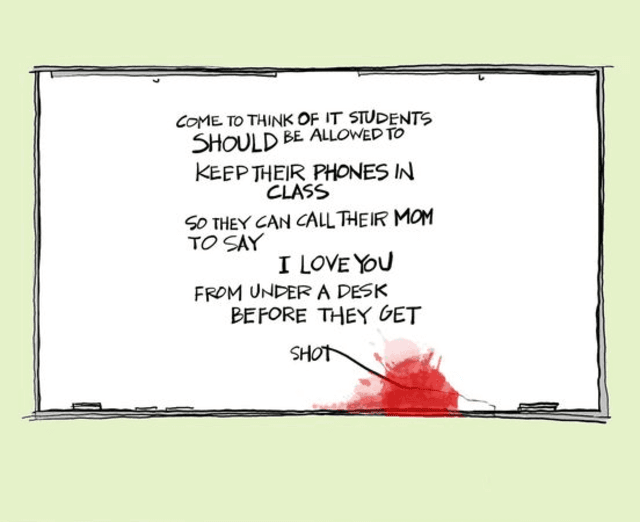 COME TO THINK OF IT STUDENTS
SHOULD BE ALLOWED TO
KEEP THEIR PHONES IN
CLASS
SO THEY CAN CALL THEIR MOM
TO SAY
I LOVE YOU
FROM UNDER A DESK
BEFORE THEY GET
SHOT